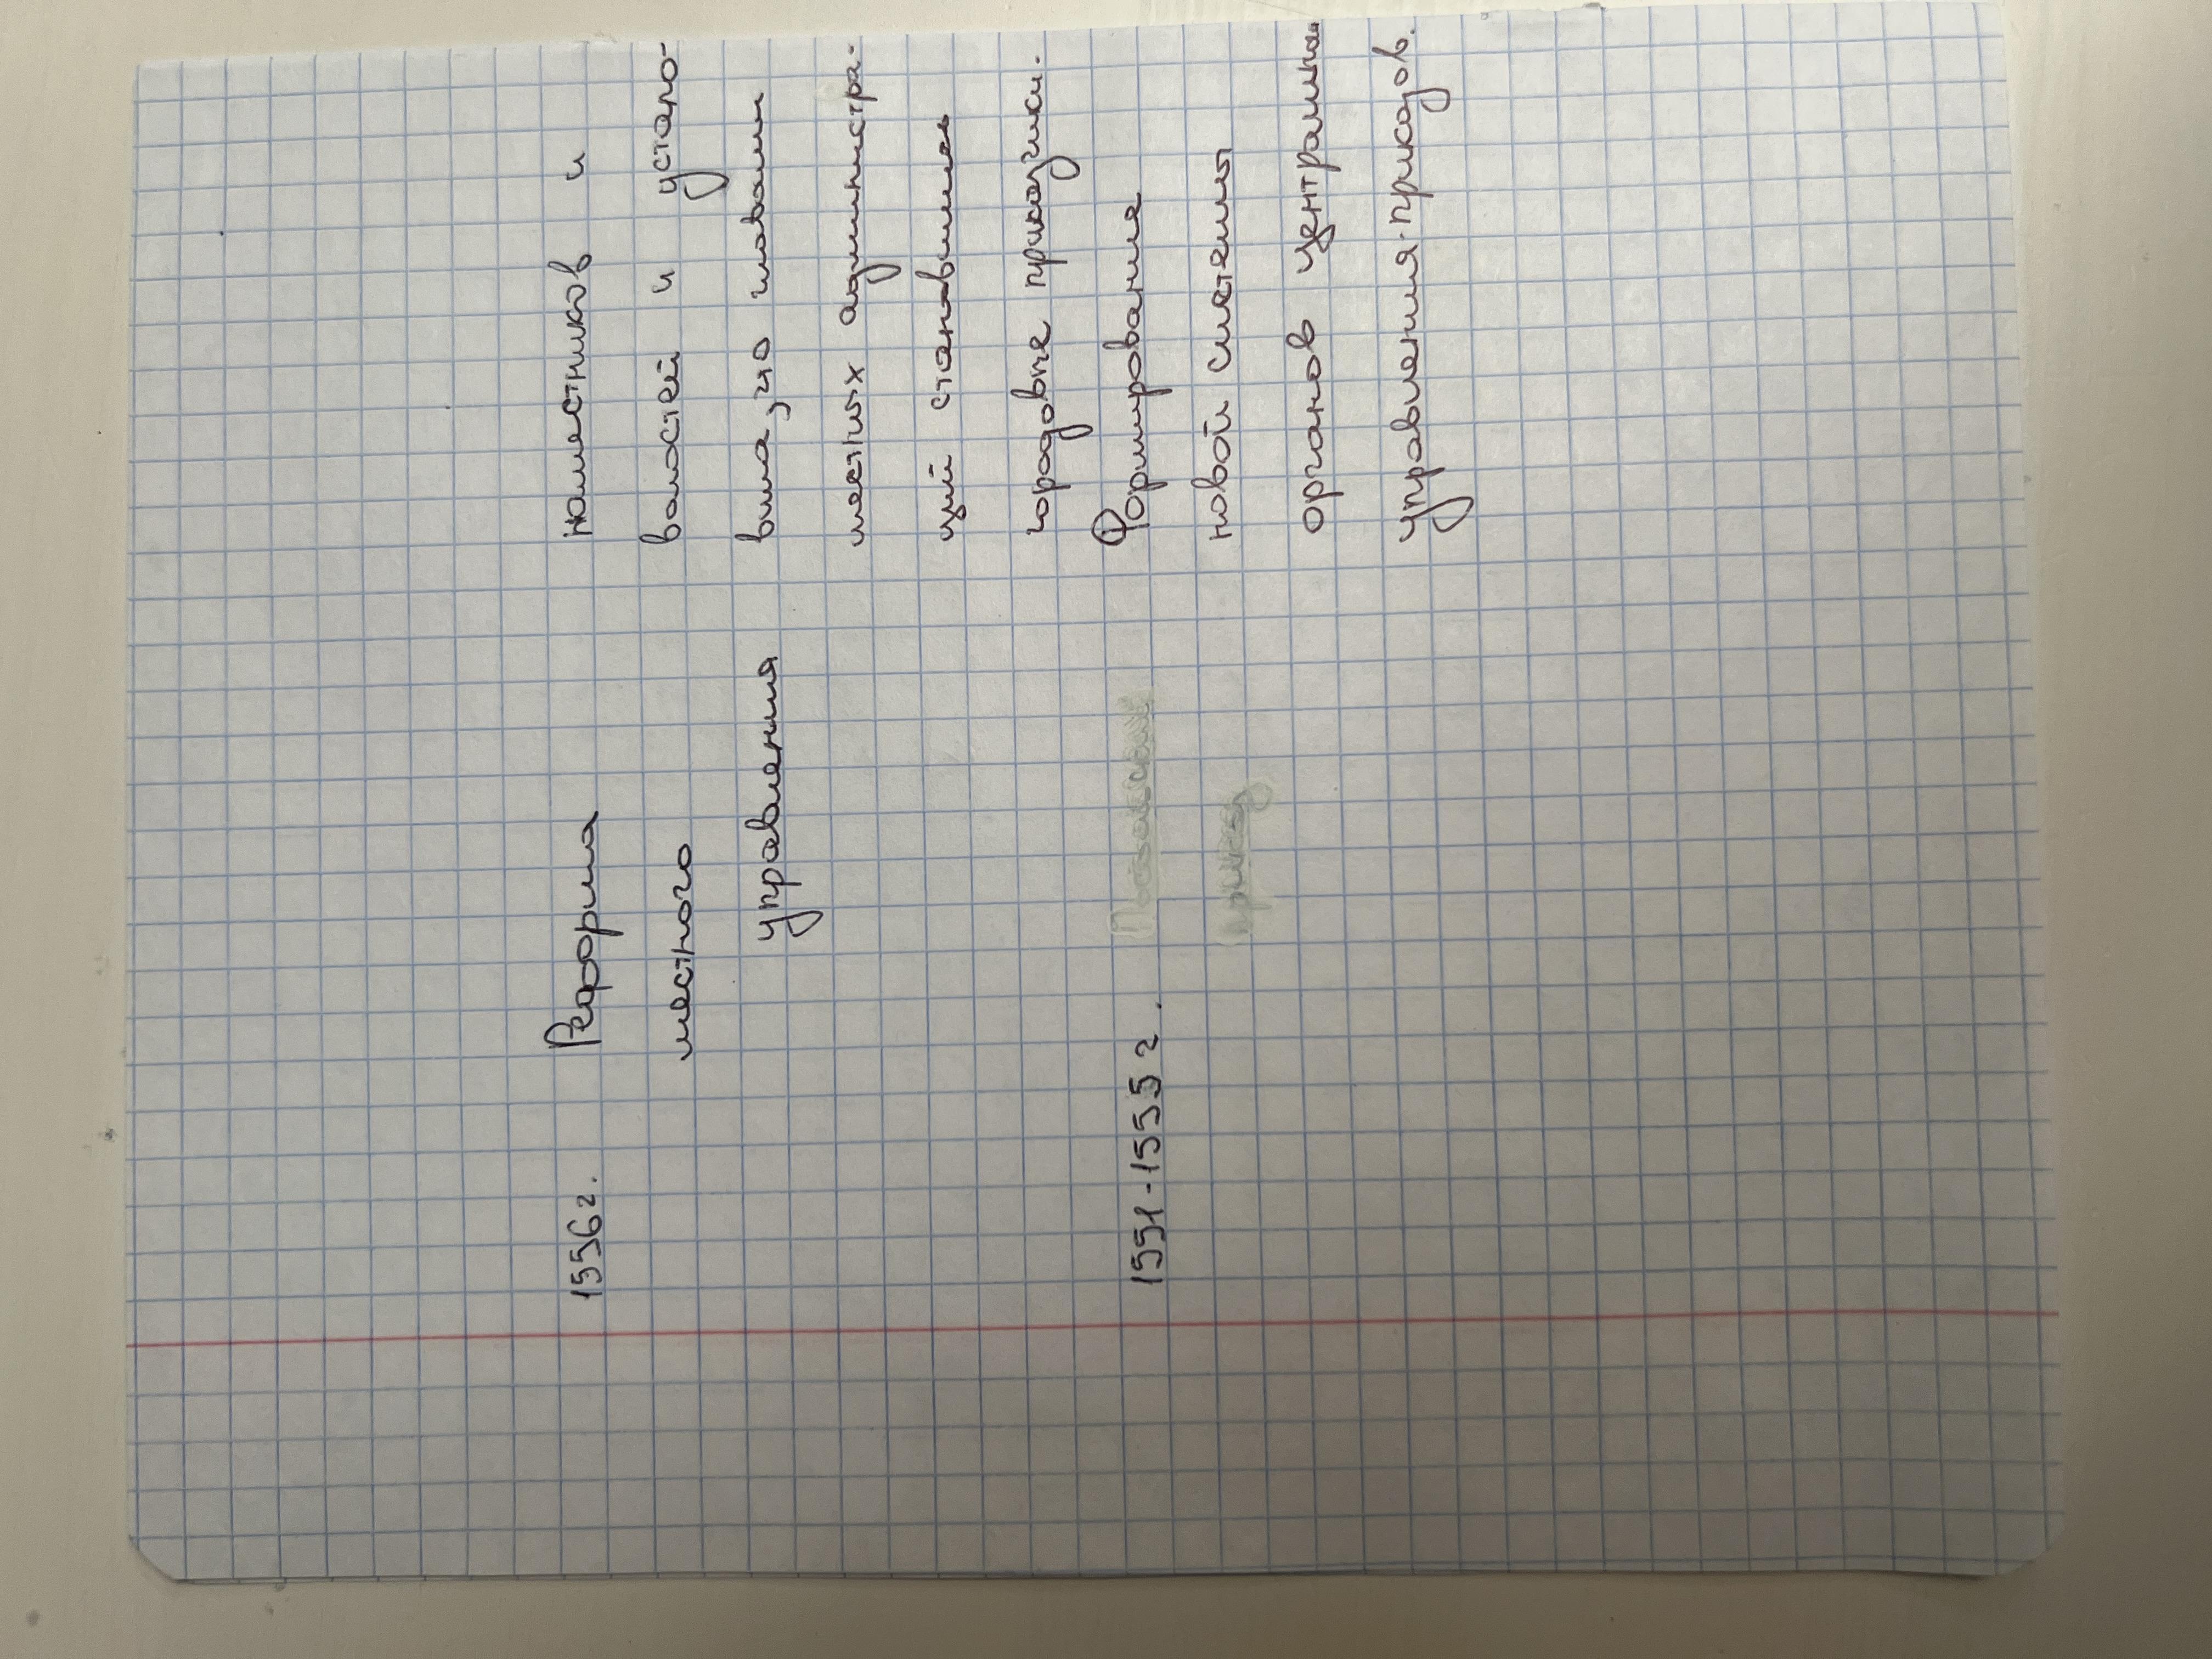 1556г. Реформа наместников и
местного волостей и устано-
управления вила, что главами
местных администра-
ций становились
городовые приказчики.
1551-1555 г. Формирование
новой системы
органов центральн
управления-приказов.